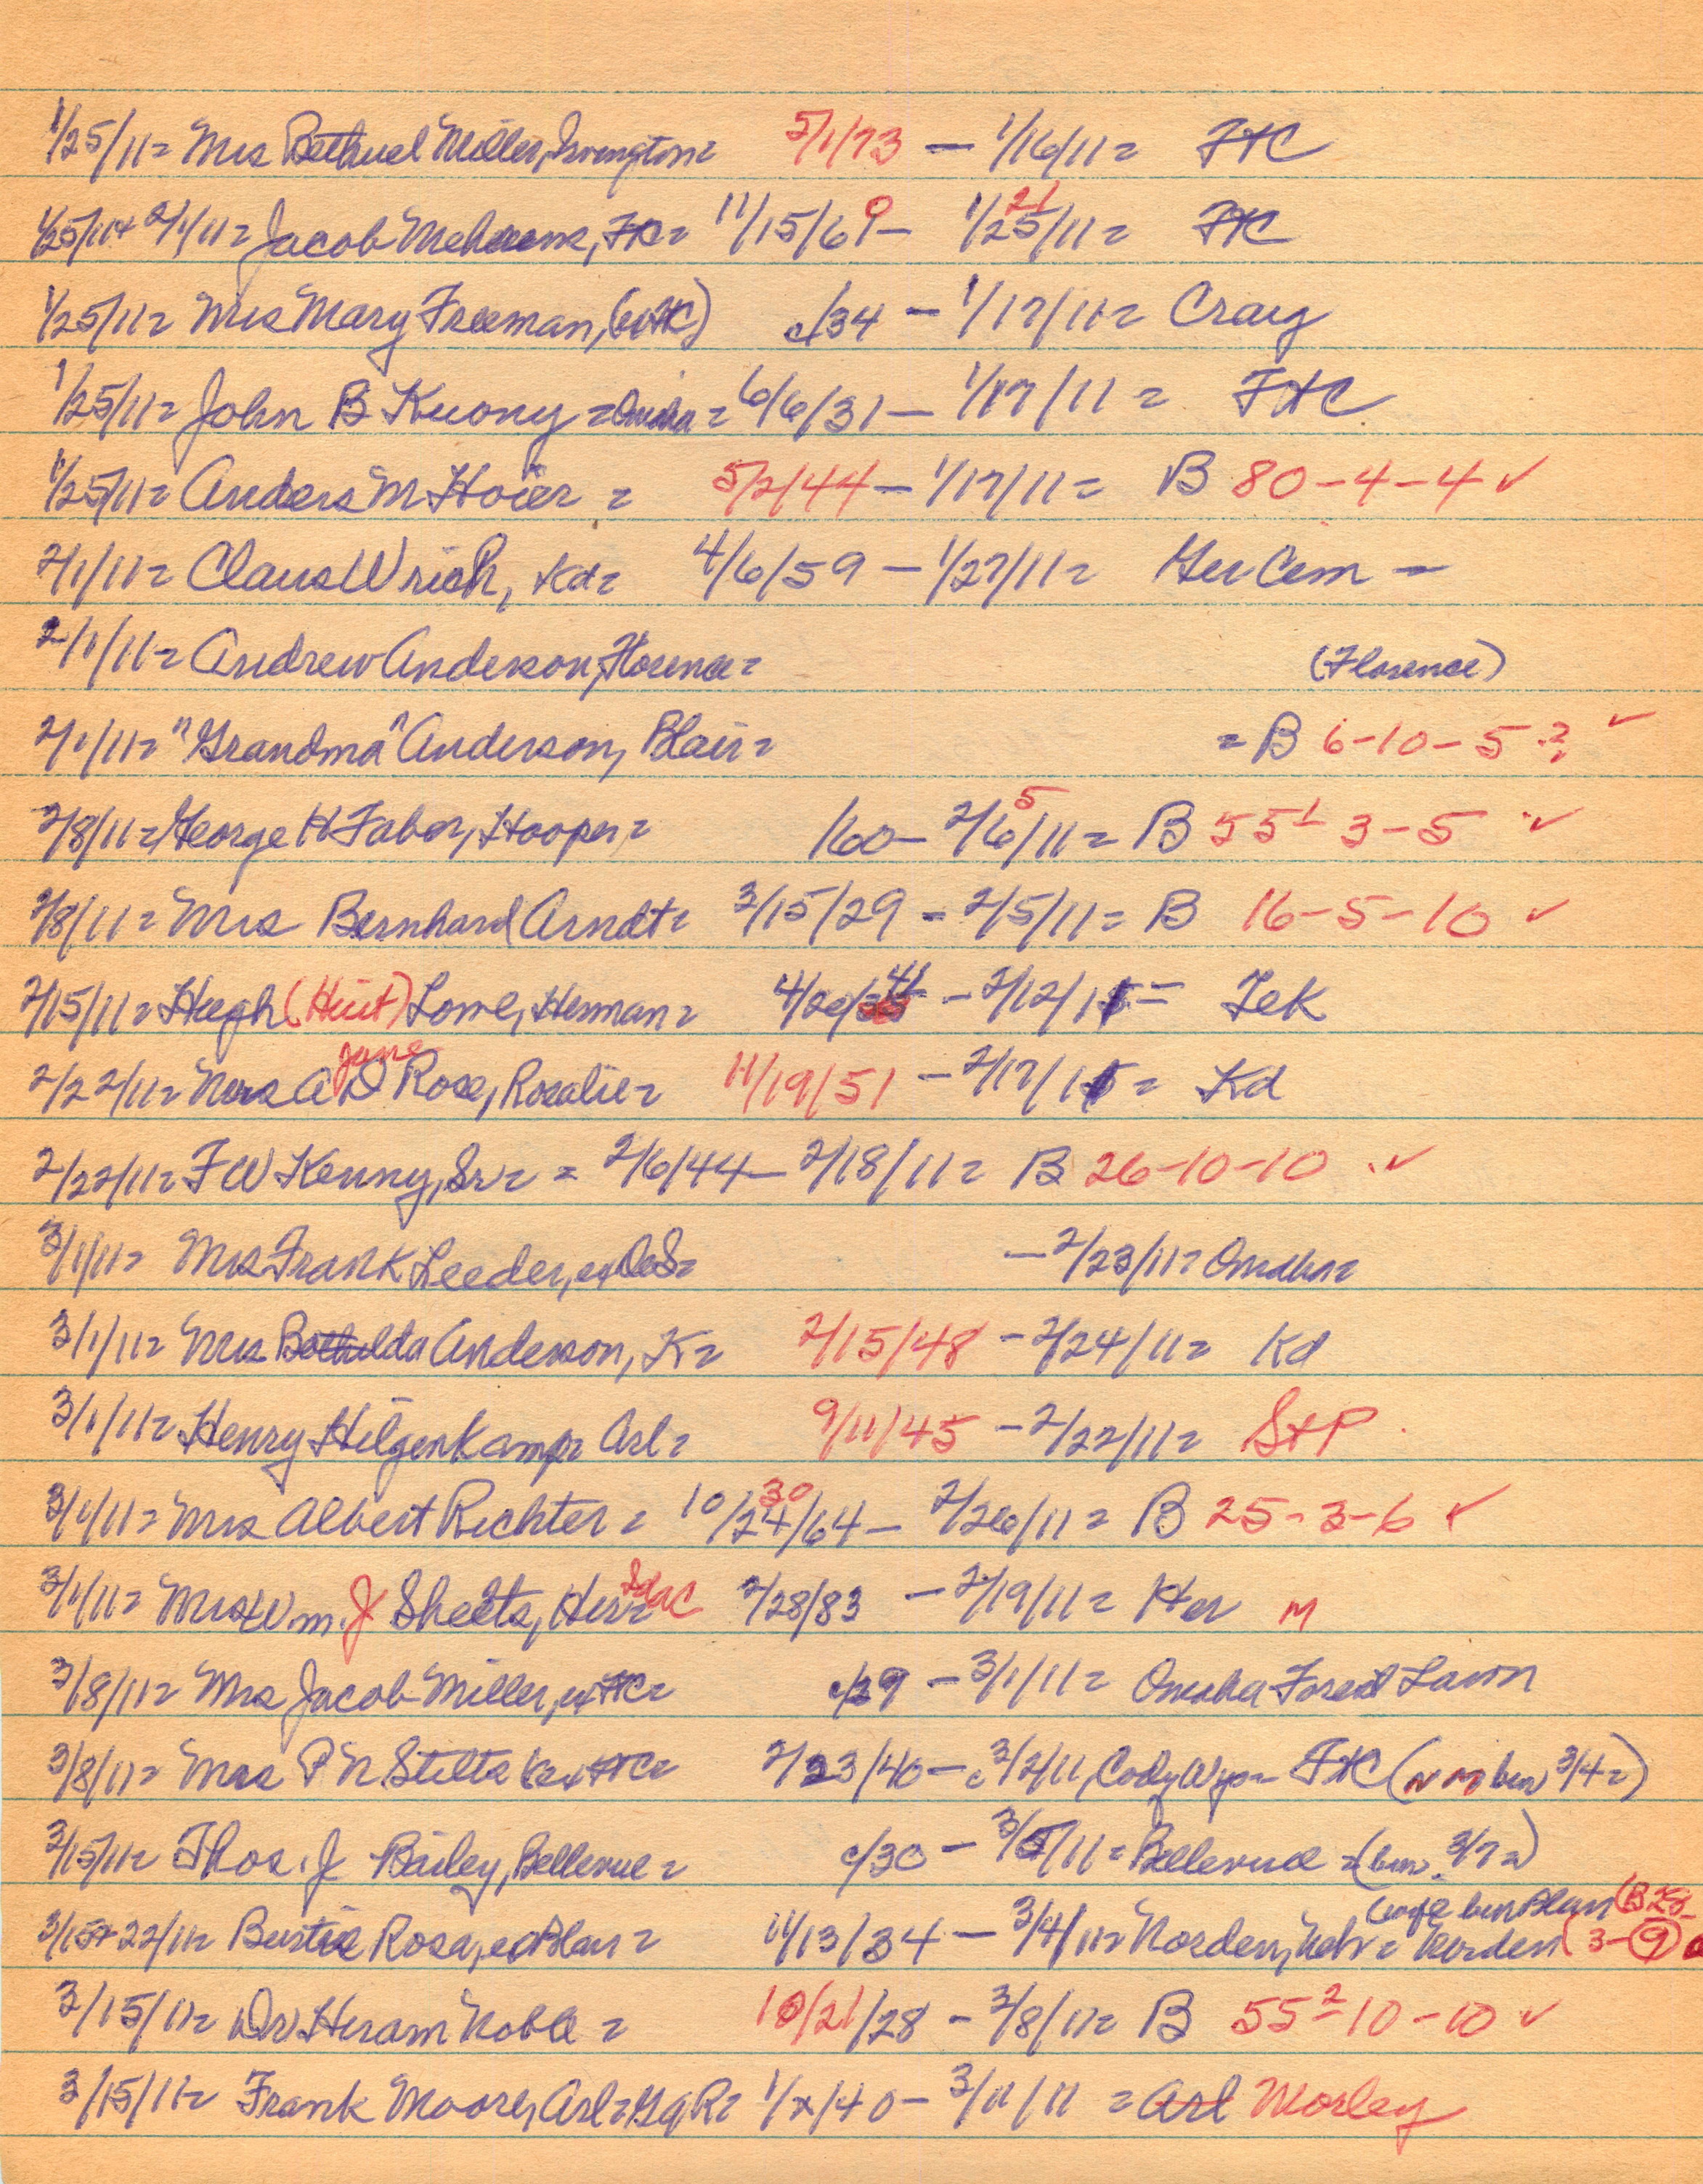 1/25/11= Mrs Bethuel Miller, Irvington= 5/1/73 — 1/16/11= FtC
1/25/11+ 2/1/11= Jacob Mehrens, FtC= 11/15/61 0 — 1/25/11= 21 FtC
1/25/11= Mrs Mary Freeman, (exFtC) c/34 — 1/17/11= Craig
1/25/11= John B Kuony = Omaha = 6/6/31 — 1/17/11 = FtC
1/25/11= Anders M Hoier = 5/2/44 — 1/17/11= B 80-4-4 ✓
2/1/11= Claus Wrich, Kd= 4/6/59 — 1/27/11= Ger Cem —
2/1/11= Andrew Anderson, Florence= (Florence)
2/1/11= "Grandma" Anderson, Blair= = B 6-10-5 ? ✓
2/8/11= George H Faber, Hooper= /60 — 2/6/11= 5 B 55 1 3-5 ✓
2/8/11= Mrs Bernhard Arndt= 3/15/29 - 2/5/11= B 16-5-10 ✓
2/15/11= Hugh (Hiut) Lowe, Herman= 4/20/ 44 - 2/12/11= Tek
2/22/11= Mrs A D Jane Rose, Rosalie= 11/19/51 - 2/17/11= Kd
2/22/11= F W Kenny, Sr= = 2/6/44 — 2/18/11= B 26-10-10 ✓
3/1/11= Mrs Frank Leeder, exDeS= — 2/23/11= Omaha=
3/1/11= Mrs Bothilda Anderson, K= 2/15/48 - 2/24/11= Kd
3/1/11= Henry Hilgenkamp= Arl= 9/11/45 - 2/22/11= StP
3/1/11= Mrs Albert Richter = 10/24/64 30 — 2/26/11= B 25-3-6 ✓
3/1/11= Mrs Wm. J Sheets, Her= Ida C 2/28/83 - 2/19/11= Her M
3/8/11= Mrs Jacob Miller, exFtC= c/29 - 3/1/11= Omaha Forest Lawn
3/8/11= Mrs P N Stilts exFtC= 2/23/40 — c 3/2/11, Cody Wyo= FtC ( bur 3/4=)
3/15/11= Thos. J Bailey, Bellevue = c/30 — 3/5/11= Bellevue = (bur. 3/7=)
3/15+22/11= Bustie Rosa, exBlair = 11/13/34 — 3/4/11= Norden, Neb = Norden (wife bur Blair (B 28- 3-9
3/15/11= Dr Hiram Noble = 10/21/28 - 3/8/11= B 55 2 -10-10 ✓
3/15/11= Frank Moore, Arl= GAR= 1/x/40 — 3/11/11 = Arl Morley